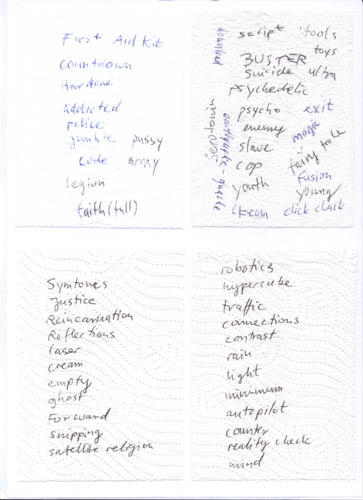 First Aid Kit
Countdown
Hardcore
Addicted
Police
Junkie pussy
Code army
Legion
faith (full)
download
script tools
toys
BUSTER
suicide ultra
psychedelic
psycho exit
enemy magic
slave
cop fairy tale
youth fusion
young
click clack
Symtones
Justice
Reincarnation
Reflections
laser
cream
empty
ghost
Forward
snipping
satellite religion
robotics
hypercube
traffic
connections
contrast
rain
light
minimum
autopilot
counter
reality check
mind